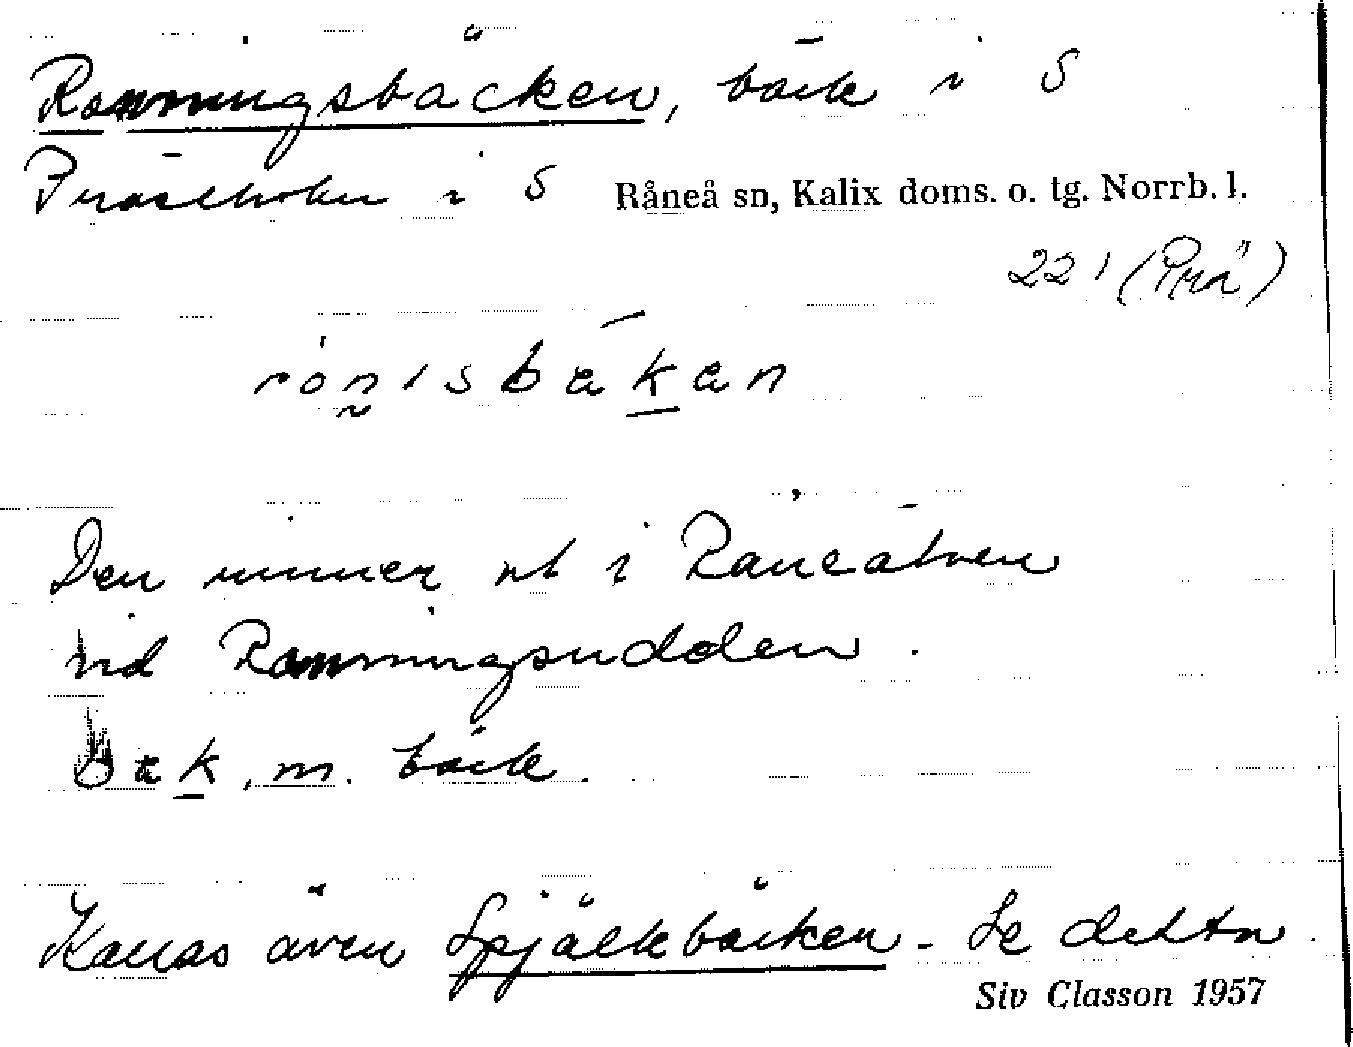 Ronningsbäcken, bäck i S
Prästholm i S Råneå sn, Kalix doms. o. tg. Norrb. l.
221 (Prä)
Den rinner ut i Råneälven
vid Ronningsudden.
bäk, m. bäck.
Kallas även Spjälkbäcken - Se detta
Siv Classon 1957